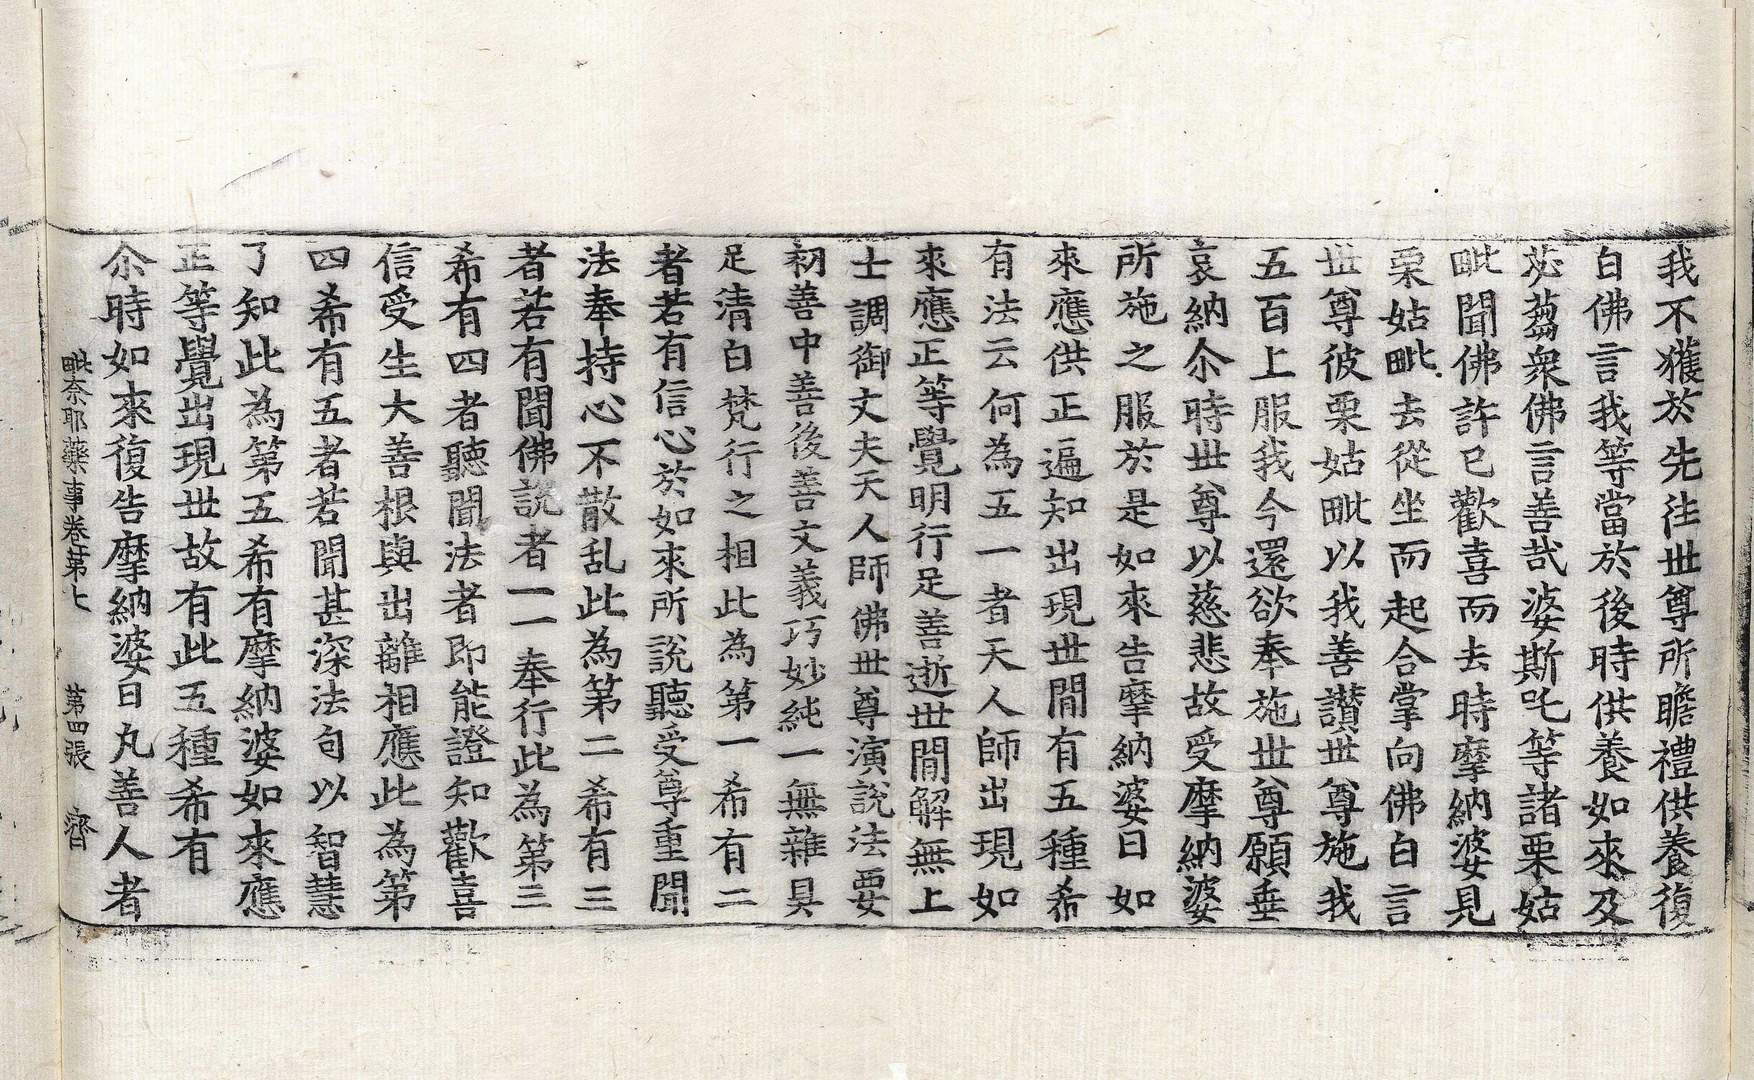 我不獲於先往世尊所瞻禮供養復
白佛言我等當於後時供養如來及
苾蒭衆佛言善哉婆斯吒等諸栗姑
毗聞佛許已歡喜而去時摩納婆見
栗姑毗去從坐而起合掌向佛白言
世尊彼栗姑毗以我善讃世尊施我
五百上服我今還欲奉施世尊願垂
哀納尒時世尊以慈悲故受摩納婆
所施之服於是如來告摩納婆曰如
來應供正遍知出現世間有五種希
有法云何為五一者天人師出現如
來應正等覺明行足善逝世間解無上
士調御丈夫天人師佛世尊演說法要
初善中善後善文義巧妙純一無雜具
足清白梵行之相此為第一希有二
者若有信心於如來所說聽受尊重聞
法奉持心不散乱此為第二希有三
者若有聞佛說者一一奉行此為第三
希有四者聽聞法者即能證知歡喜
信受生大善根與出離相應此為第
四希有五者若聞甚深法句以智慧
了知此為第五希有摩納婆如來應
正等覺出現世故有此五種希有
尒時如來復告摩納婆曰凡善人者
毗奈耶藥事卷第七 第四張 濟